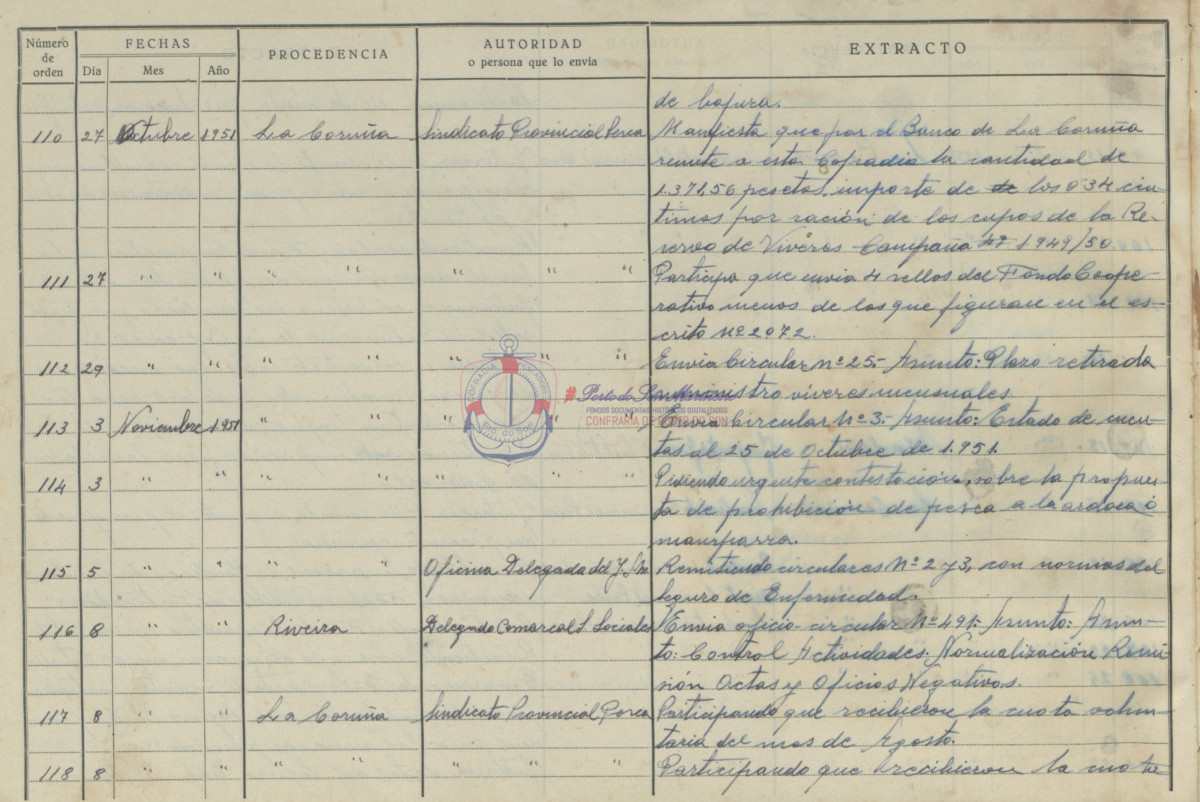 Número de orden FECHAS PROCEDENCIA AUTORIDAD o persona que lo envía EXTRACTO
Día Mes Año
de bajura.
110 27 Octubre 1951 La Coruña Sindicato Provincial Pesca Manifiesta que por el Banco de La Coruña
remite a esta Cofradía la cantidad de
1.371,56 pesetas, importe de los 0'34 cén-
timos por ración de los cupos de la Re-
serva de Viveres - Campaña 1949/50
111 27 " " " " " " " Participa que envia 4 sellos del Fondo Coope-
rativo menos de los que figuran en el es-
crito Nº 2072.
112 29 " " " " " " " Envia Circular nº 25.- Asunto: Plazo retirada
suministro viveres mensuales.
113 3 Noviembre 1951 " " " " " Envia Circular Nº 3.- Asunto: Estado de cuen-
tas al 25 de Octubre de 1.951.
114 3 " " " " " " " Pidiendo urgente contestación, sobre la propues-
ta de prohibición de pesca a la ardora ó
manparra.
115 5 " " " " Oficina Delegada del I.S.M. Remitiendo circulares Nº 2 y 3, con normas del
Seguro de Enfermedad.
116 8 " " Riveira Delegado Comarcal S. Sociales Envia oficio-circular Nº 491: Asunto: Asun-
to: Control Actividades. Normalización Remi-
sión Actas y Oficios Negativos.
117 8 " " La Coruña Sindicato Provincial Pesca Participando que recibieron la cuota volun-
taria del mes de Agosto.
118 8 " " " " " " " Participando que recibieron la cuota
COFRADIA
PESCADORES
Pto. do Son
#Porto do Son
FONDOS DOCUMENTAIS HISTÓRICOS DIXITALIZADOS
CONFRARÍA DE PORTO DO SON